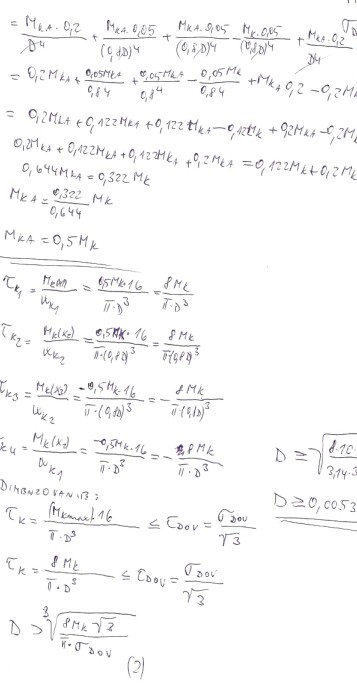 = MKA·0,2/D⁴ + MKA·0,05/(0,8D)⁴ + MKA·0,05/(0,8D)⁴ - MK·0,05/(0,8D)⁴ + MKA·0,2/D⁴
= 0,2MKA + 0,05MKA/0,8⁴ + 0,05MKA/0,8⁴ - 0,05MK/0,8⁴ + MKA 0,2 - 0,2MK
= 0,2MKA + 0,122MKA + 0,122MKA - 0,122MK + 0,2MKA - 0,2MK
0,2MKA + 0,122MKA + 0,122MKA + 0,2MKA = 0,122MK + 0,2MK
0,644MKA = 0,322MK
MKA = 0,322/0,644 MK
MKA = 0,5MK
τK1 = /WK1 = 0,5MK·16/π·D³ = 8MK/π·D³
τK2 = MK(x2)/WK2 = 0,5MK·16/π·(0,8D)³ = 8MK/π(0,8D)³
τK3 = MK(x3)/WK2 = -0,5MK·16/π·(0,8D)³ = - 8MK/π(0,8D)³
τK4 = /WK1 = -0,5MK·16/π·D³ = - 8MK/π·D³
D ≥ √8·10
3,14·3
DIMENZOVANIE:
D ≥ 0,0053
τK = 16/π·D³ ≤ τDOV = σDOV/√3
τK = 8MK/π·D³ ≤ τDOV = σDOV/√3
D > ³√8MK√3/π·σDOV
(2)